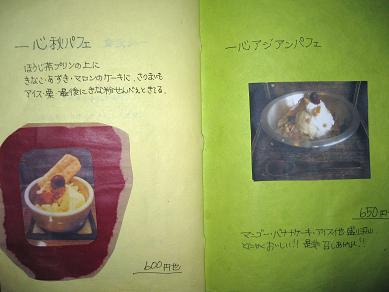 一心秋パフェ
ほうじ茶プリンの上に
きなこ・あずき・マロンのケーキに、さつまいも
アイス・栗・最後にきな粉せんべえときてる。
600円也
一心アジアンパフェ
650円
マンゴー・バナナケーキ・アイス他 盛り沢山
とにかくおいしい!! 是非 召しあがれ!!